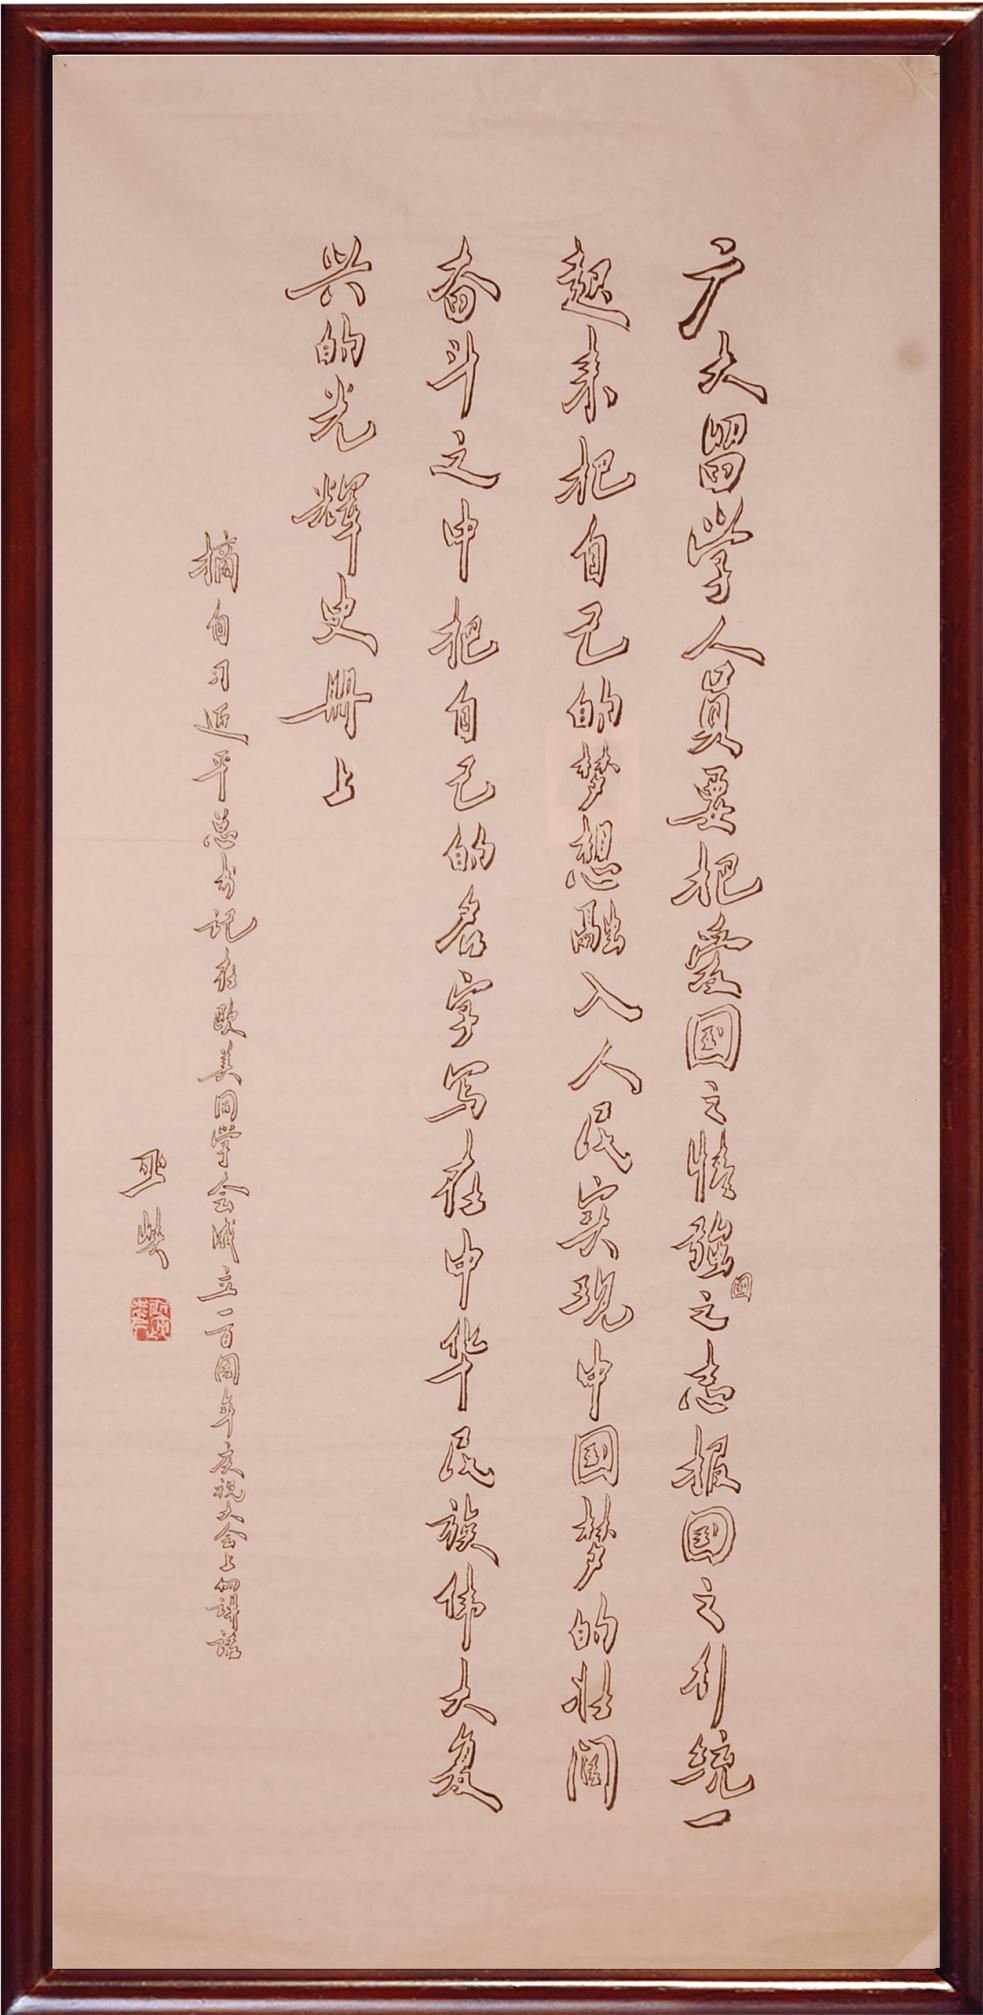 广大留学人员要把爱国之情强国之志报国之行统一
起来把自己的梦想融入人民实现中国梦的壮阔
奋斗之中把自己的名字写在中华民族伟大复
兴的光辉史册上
摘自习近平总书记在欧美同学会成立一百周年庆祝大会上的讲话